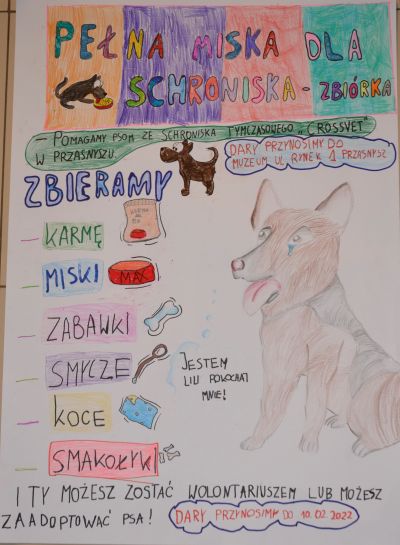 PEŁNA MISKA DLA
SCHRONISKA - ZBIÓRKA
- POMAGAMY PSOM ZE SCHRONISKA TYMCZASOWEGO „CROSSVET"
W PRZASNYSZU.
DARY PRZYNOSIMY DO
MUZEUM UL. RYNEK 1 PRZASNYSZ
ZBIERAMY
- KARMĘ
- MISKI
MAX
- ZABAWKI
- SMYCZE
- KOCE
- SMAKOŁYKI
JESTEM
LIU POKOCHAJ
MNIE!
I TY MOŻESZ ZOSTAĆ WOLONTARIUSZEM LUB MOŻESZ
ZAADOPTOWAĆ PSA!
DARY PRZYNOSIMY DO 10.02.2022